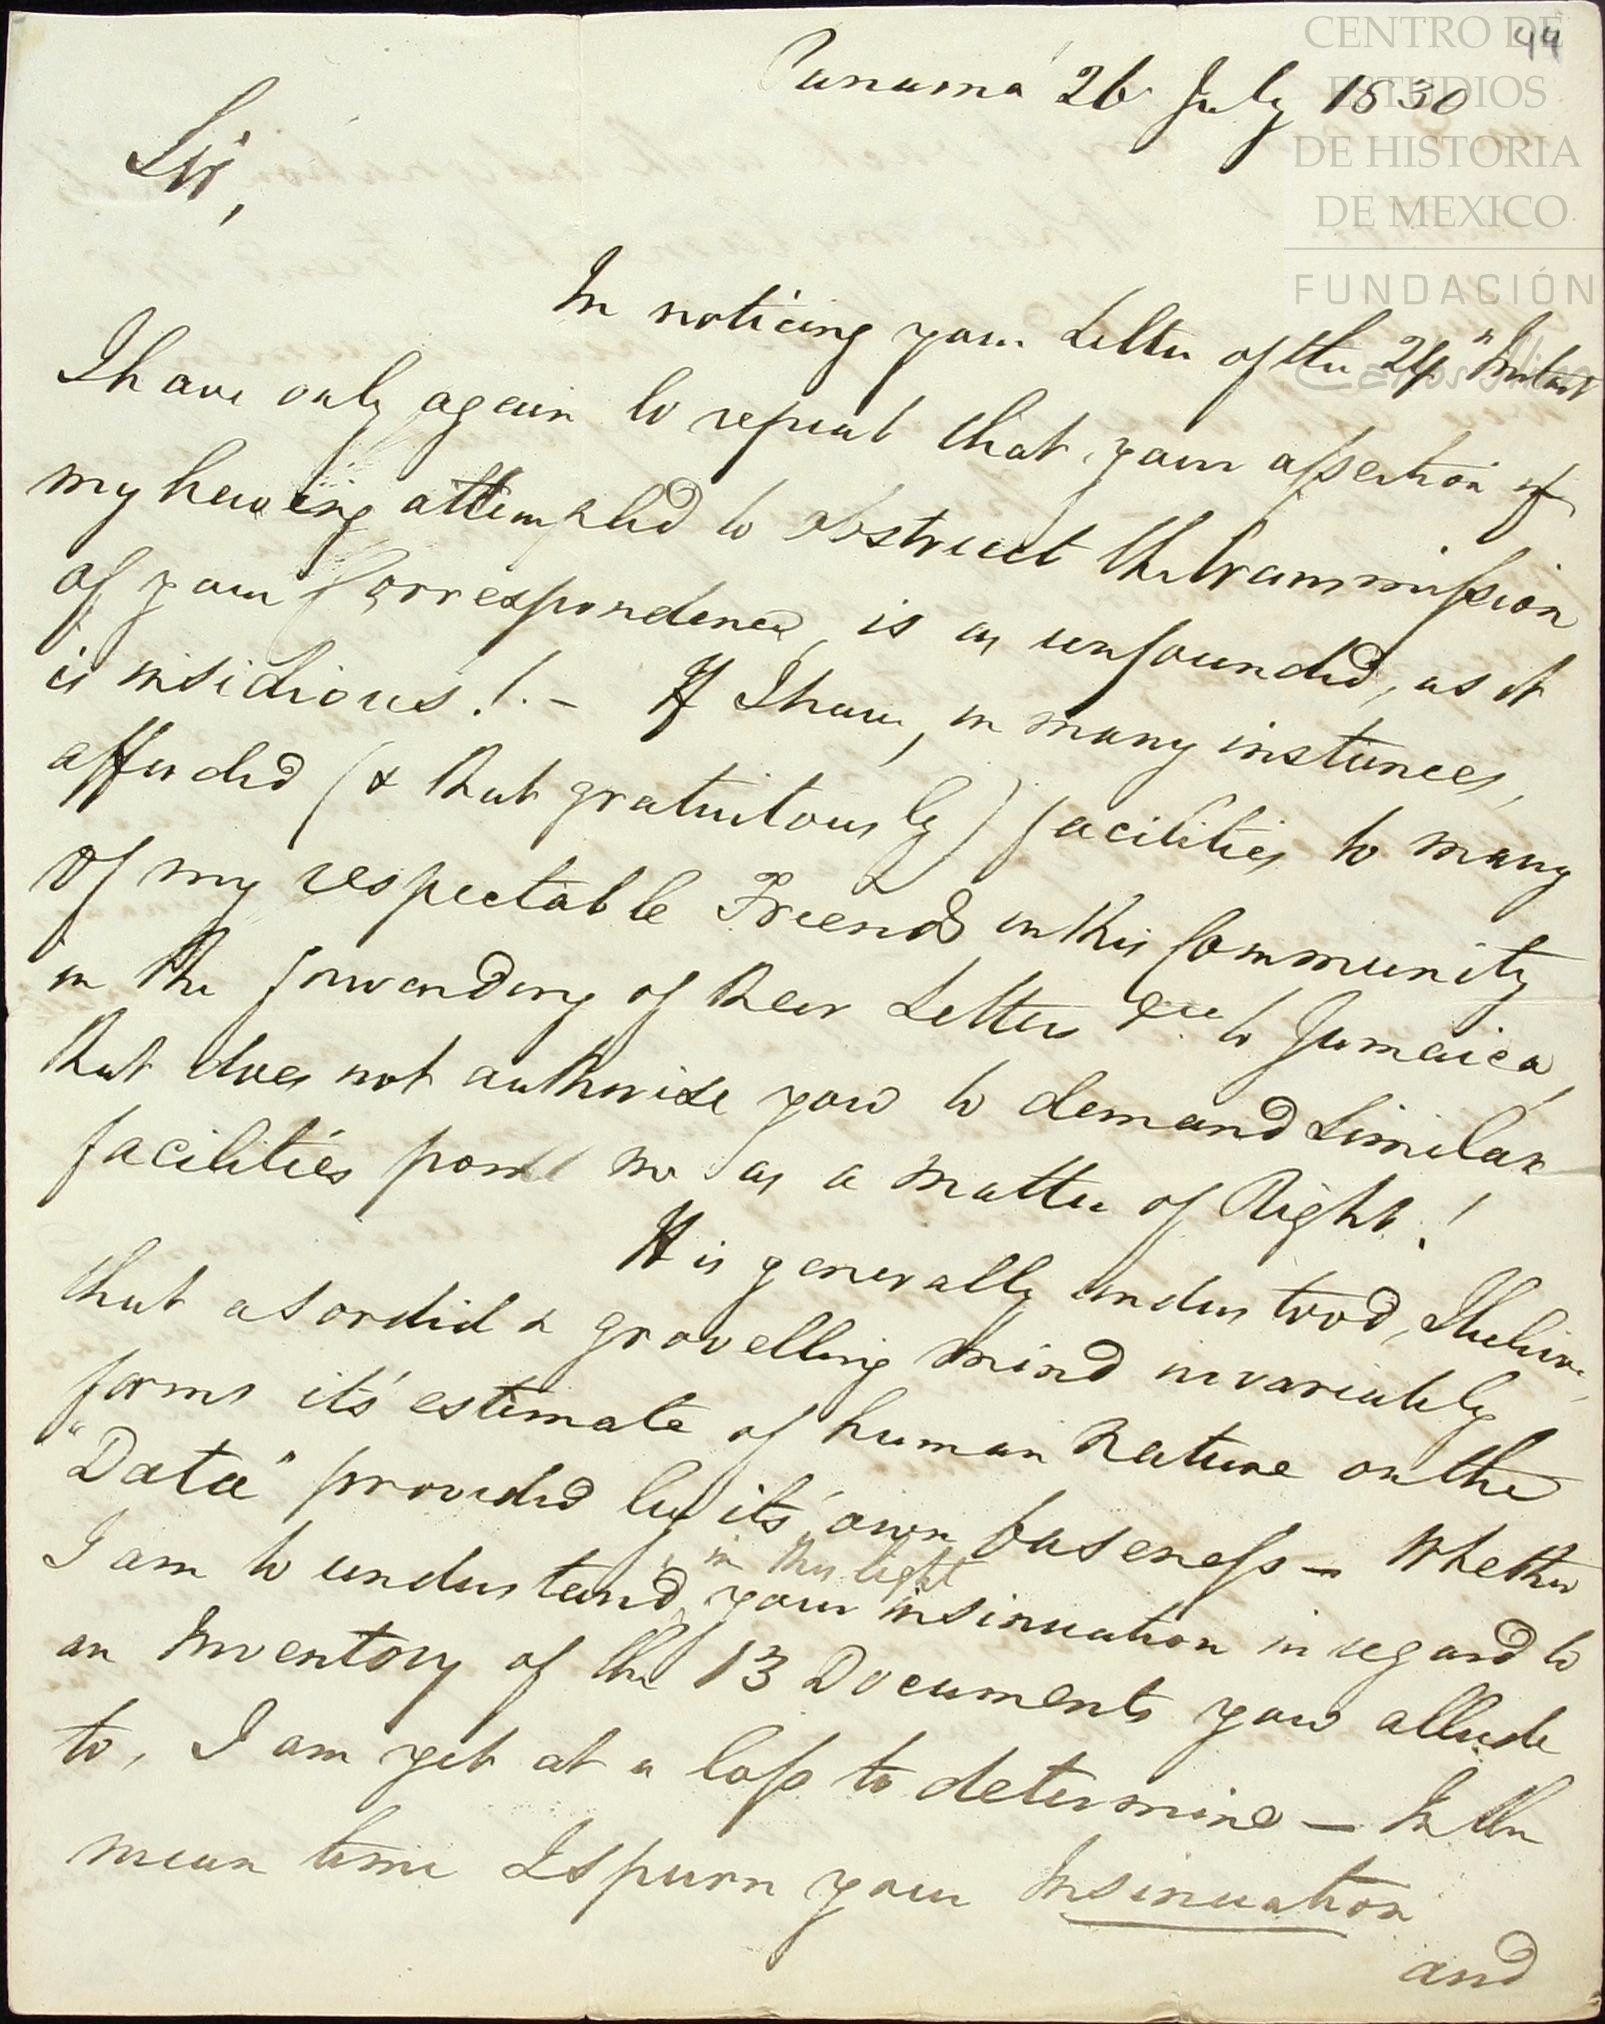 44
CENTRO DE
ESTUDIOS
DE HISTORIA
DE MEXICO
FUNDACIÓN
Carlos Slim
Panamá 26 July 1830
Sir,
In noticing your Letter of the 24" Instant
I have only again to repeat that your assertion of
my having attempted to obstruct the transmission
of your Correspondence, is as unfounded, as it
is insidious! - If I have, in many instances,
afforded (& that gratuitously) facilities to many
of my respectable Friends in this Community
in the forwarding of their Letters &cc to Jamaica,
that does not authorise you to demand similar
facilities from me as a matter of Right!
It is generally understood, I believe,
that a sordid & grovelling mind invariably
forms it's estimate of human Nature on the
"Data" provided by it's own baseness - Whether
in this light
I am to understand, your insinuation in regard to
an Inventory of the 13 Documents you allude
to, I am yet at a loss to determine - In the
mean time I spurn your Insinuation
and